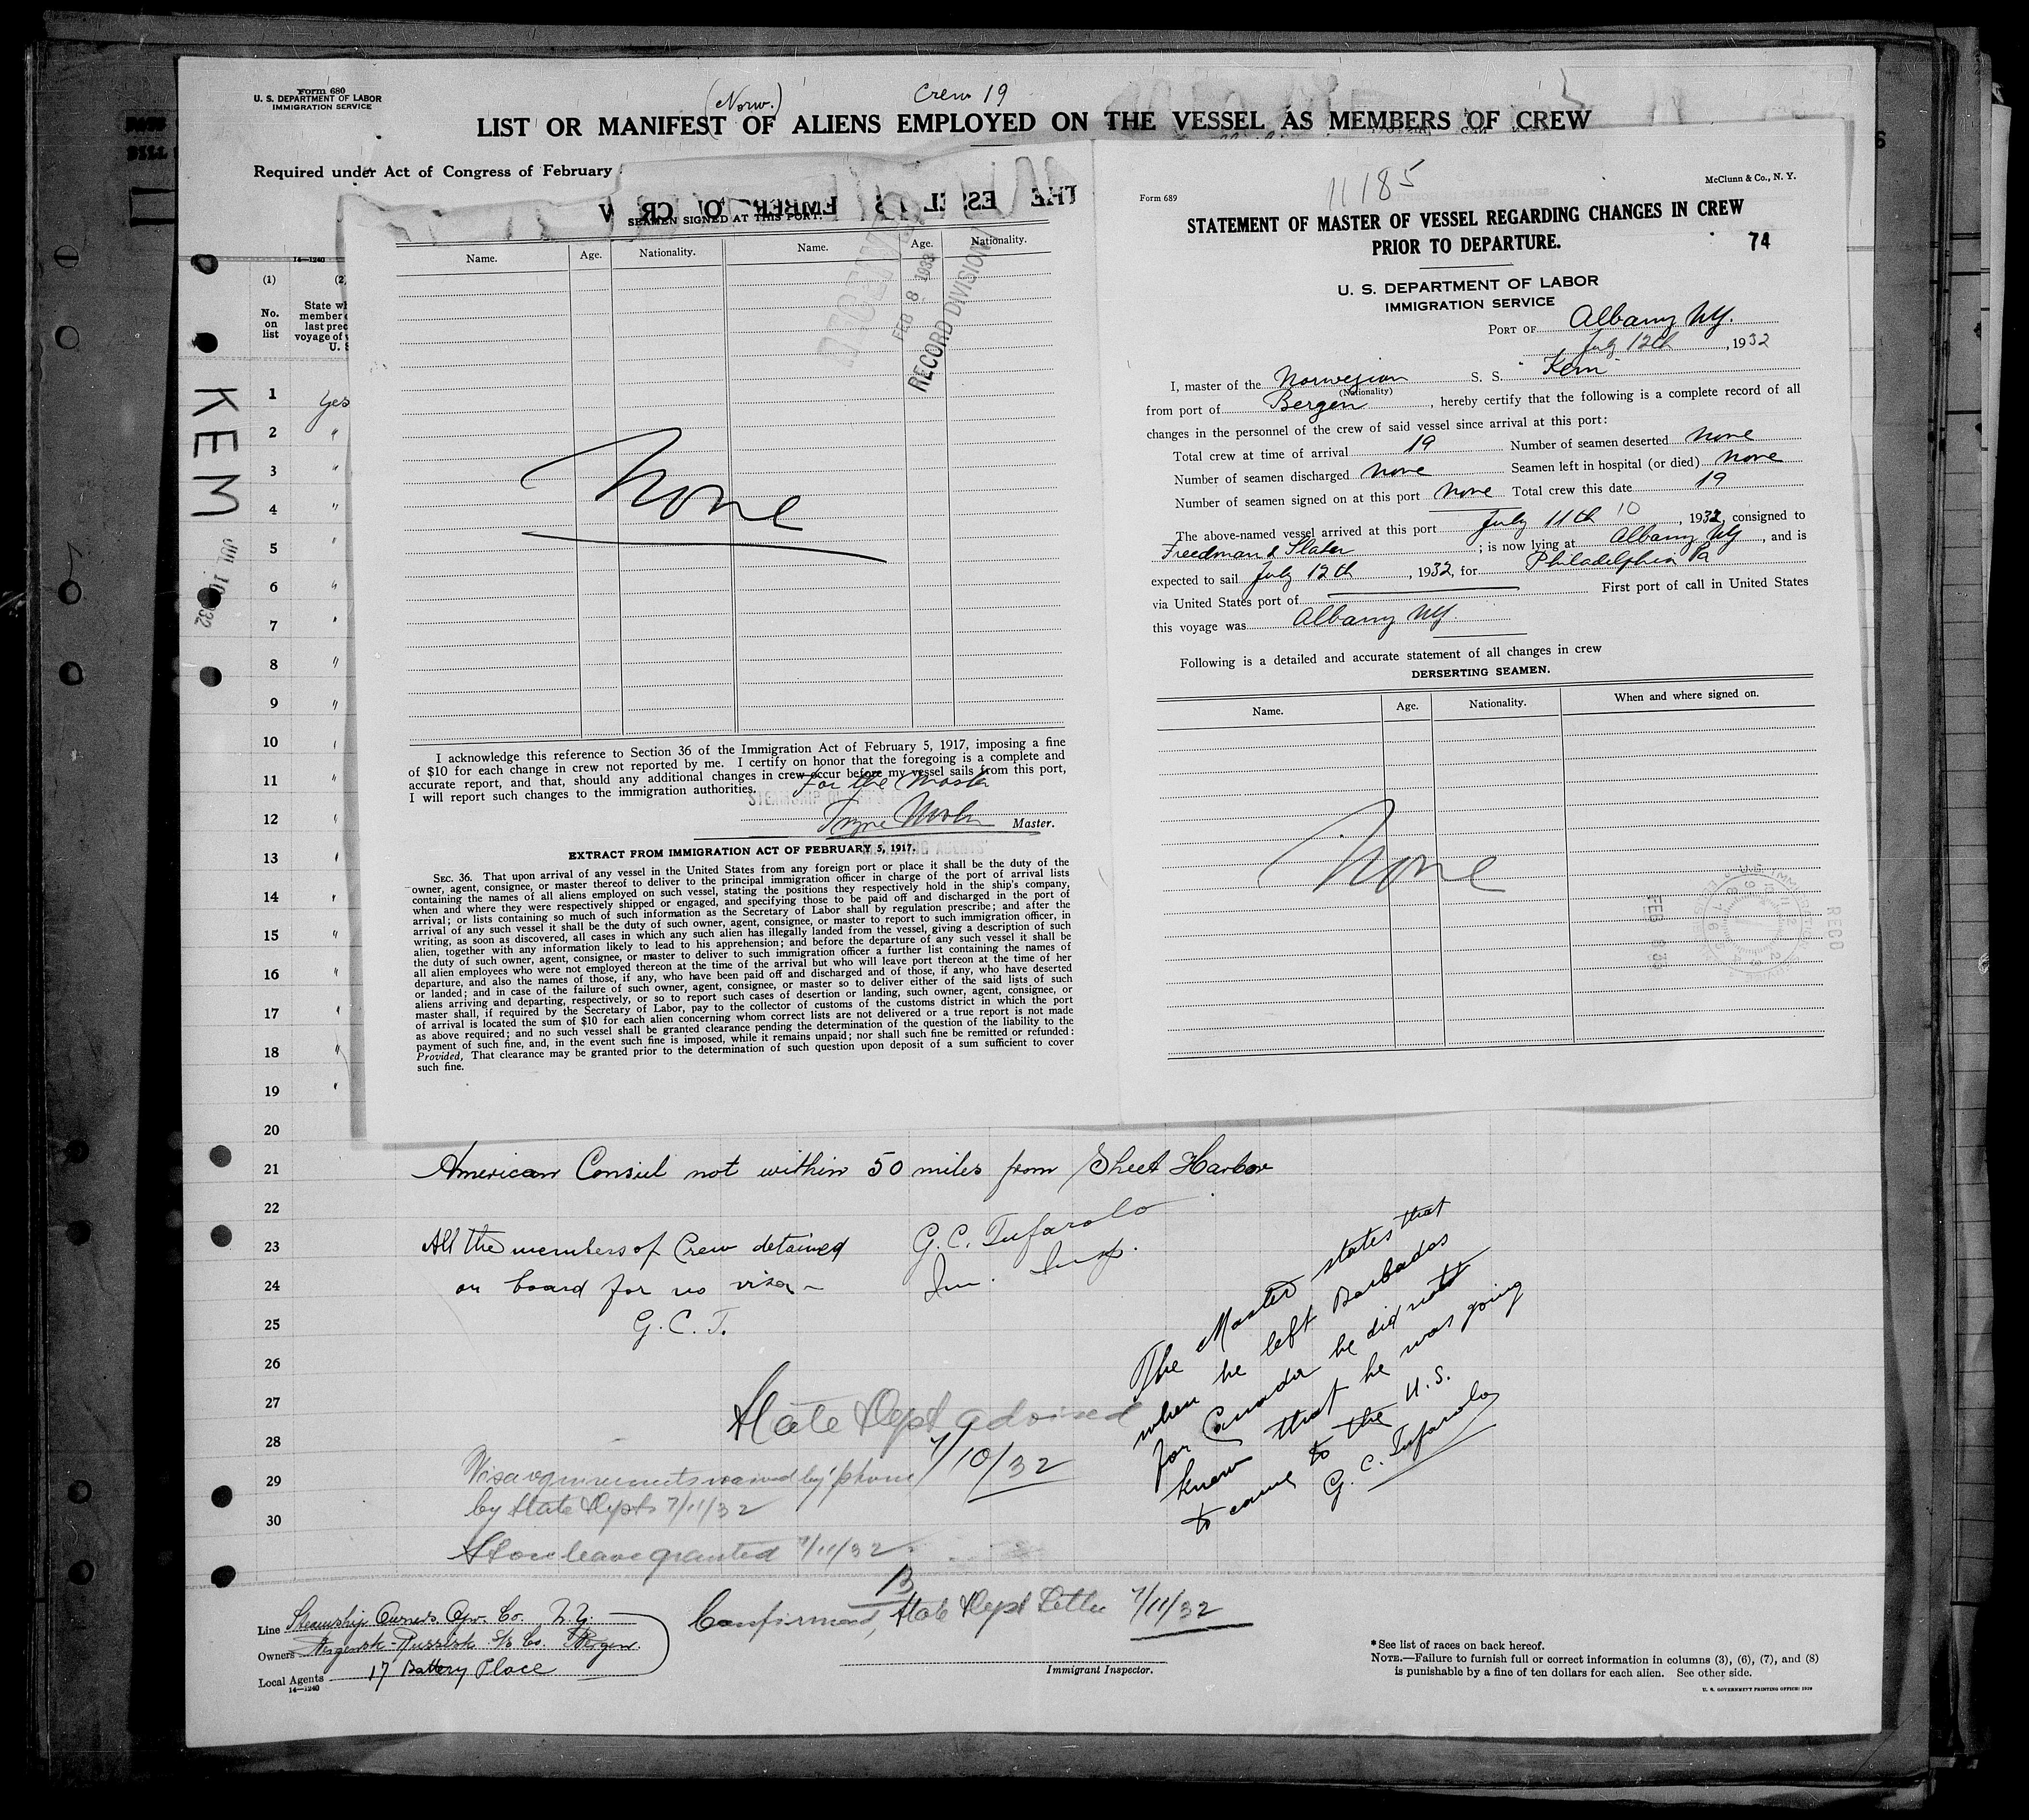 Form 680
U. S. DEPARTMENT OF LABOR
IMMIGRATION SERVICE
(Norw.)
Crew 19
LIST OR MANIFEST OF ALIENS EMPLOYED ON THE VESSEL AS MEMBERS OF CREW
Required under Act of Congress of February
14—1240
(1)
No.
on
list
(2)
State wh
member
last prec
voyage of
U. S
KEM
JUL 10 1932
1 Yes
2 "
3 "
4 "
5 "
6 "
7 "
8 "
9 "
10
11 "
12 "
13 "
14 "
15 "
16 "
17 "
18 "
19 "
20
21
22
23
24
25
26
27
28
29
30
SEAMEN SIGNED AT THIS PORT.
Name. Age. Nationality. Name. Age. Nationality.
RECEIVED
FEB 8 1933
RECORD DIVISION
None
I acknowledge this reference to Section 36 of the Immigration Act of February 5, 1917, imposing a fine
of $10 for each change in crew not reported by me. I certify on honor that the foregoing is a complete and
accurate report, and that, should any additional changes in crew occur before my vessel sails from this port,
I will report such changes to the immigration authorities.
For the Master
Master.
EXTRACT FROM IMMIGRATION ACT OF FEBRUARY 5, 1917.
SEC. 36. That upon arrival of any vessel in the United States from any foreign port or place it shall be the duty of the
owner, agent, consignee, or master thereof to deliver to the principal immigration officer in charge of the port of arrival lists
containing the names of all aliens employed on such vessel, stating the positions they respectively hold in the ship's company,
when and where they were respectively shipped or engaged, and specifying those to be paid off and discharged in the port of
arrival; or lists containing so much of such information as the Secretary of Labor shall by regulation prescribe; and after the
arrival of any such vessel it shall be the duty of such owner, agent, consignee, or master to report to such immigration officer, in
writing, as soon as discovered, all cases in which any such alien has illegally landed from the vessel, giving a description of such
alien, together with any information likely to lead to his apprehension; and before the departure of any such vessel it shall be
the duty of such owner, agent, consignee, or master to deliver to such immigration officer a further list containing the names of
all alien employees who were not employed thereon at the time of the arrival but who will leave port thereon at the time of her
departure, and also the names of those, if any, who have been paid off and discharged and of those, if any, who have deserted
or landed; and in case of the failure of such owner, agent, consignee, or master so to deliver either of the said lists of such
aliens arriving and departing, respectively, or so to report such cases of desertion or landing, such owner, agent, consignee, or
master shall, if required by the Secretary of Labor, pay to the collector of customs of the customs district in which the port
of arrival is located the sum of $10 for each alien concerning whom correct lists are not delivered or a true report is not made
as above required; and no such vessel shall be granted clearance pending the determination of the question of the liability to the
payment of such fine, and, in the event such fine is imposed, while it remains unpaid; nor shall such fine be remitted or refunded:
Provided, That clearance may be granted prior to the determination of such question upon deposit of a sum sufficient to cover
such fine.
11185
McClunn & Co., N. Y.
Form 689
STATEMENT OF MASTER OF VESSEL REGARDING CHANGES IN CREW
PRIOR TO DEPARTURE.
74
U. S. DEPARTMENT OF LABOR
IMMIGRATION SERVICE
PORT OF Albany NY.
July 12th, 1932
I, master of the Norwegian S. S. Kem
(Nationality)
from port of Bergen, hereby certify that the following is a complete record of all
changes in the personnel of the crew of said vessel since arrival at this port:
Total crew at time of arrival 19 Number of seamen deserted none
Number of seamen discharged none Seamen left in hospital (or died) none
Number of seamen signed on at this port none Total crew this date 19
The above-named vessel arrived at this port July 11th 10, 1932, consigned to
Freedman & Slater; is now lying at Albany NY, and is
expected to sail July 12th, 1932, for Philadelphia Pa
via United States port of First port of call in United States
this voyage was Albany NY.
Following is a detailed and accurate statement of all changes in crew
DERSERTING SEAMEN.
Name. Age. Nationality. When and where signed on.
None
FEB 8 33
RECD
American Consul not within 50 miles from Sheet Harbor
All the members of Crew detained
on board for no visa -
G. C. T.
G. C. Tufarolo
Im. Insp.
The Master states that
when he left Barbados
for Canada he did not
know that he was going
to come to the U. S.
G. C. Tufarolo
State Dept advised
7/10/32
Visa requirements waived by 'phone
by State Dept 7/11/32
Shore leave granted 7/11/32
Confirmed, State Dept Letter 7/11/32
Line Steamship Owners Opr. Co. N.Y.
Owners Bergensk-Russisk S/S Co. Bergen
Local Agents 17 Battery Place
14—1240
Immigrant Inspector.
* See list of races on back hereof.
NOTE.—Failure to furnish full or correct information in columns (3), (6), (7), and (8)
is punishable by a fine of ten dollars for each alien. See other side.
U. S. GOVERNMENT PRINTING OFFICE: 1929